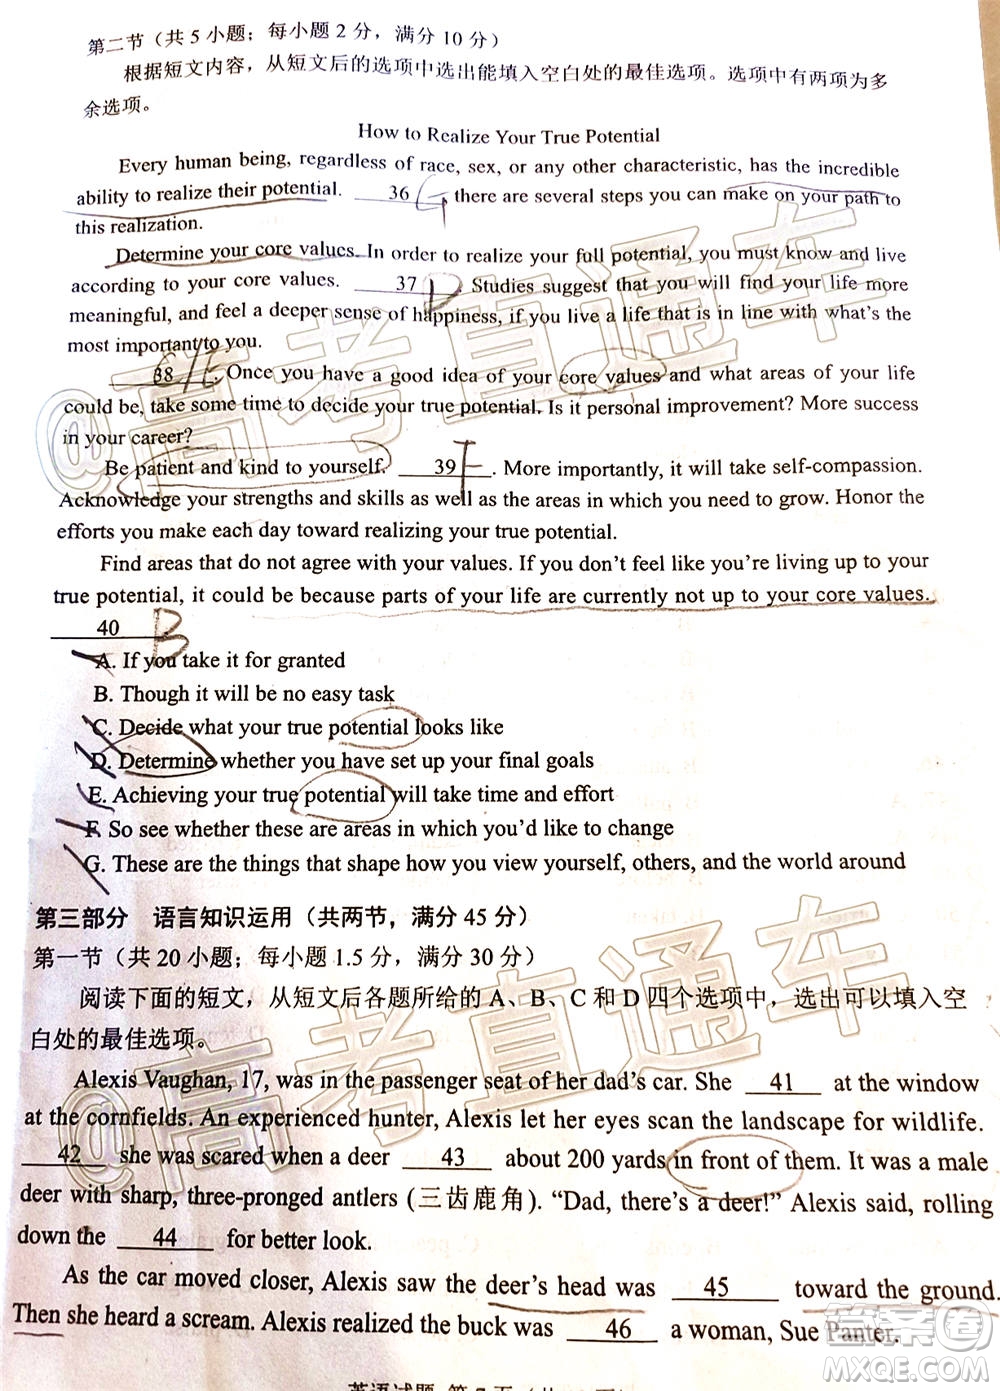 第二节（共 5 小题；每小题 2 分，满分 10 分）
根据短文内容，从短文后的选项中选出能填入空白处的最佳选项。选项中有两项为多
余选项。
How to Realize Your True Potential
Every human being, regardless of race, sex, or any other characteristic, has the incredible
ability to realize their potential. 36 G there are several steps you can make on your path to
this realization.
Determine your core values. In order to realize your full potential, you must know and live
according to your core values. 37 D. Studies suggest that you will find your life more
meaningful, and feel a deeper sense of happiness, if you live a life that is in line with what's the
most important to you.
38. Once you have a good idea of your core values and what areas of your life
could be, take some time to decide your true potential. Is it personal improvement? More success
in your career?
Be patient and kind to yourself. 39 F. More importantly, it will take self-compassion.
Acknowledge your strengths and skills as well as the areas in which you need to grow. Honor the
efforts you make each day toward realizing your true potential.
Find areas that do not agree with your values. If you don't feel like you're living up to your
true potential, it could be because parts of your life are currently not up to your core values.
40 B
A. If you take it for granted
B. Though it will be no easy task
C. Decide what your true potential looks like
D. Determine whether you have set up your final goals
E. Achieving your true potential will take time and effort
F. So see whether these are areas in which you'd like to change
G. These are the things that shape how you view yourself, others, and the world around
第三部分 语言知识运用（共两节，满分 45 分）
第一节（共 20 小题；每小题 1.5 分，满分 30 分）
阅读下面的短文，从短文后各题所给的 A、B、C 和 D 四个选项中，选出可以填入空
白处的最佳选项。
Alexis Vaughan, 17, was in the passenger seat of her dad's car. She 41 at the window
at the cornfields. An experienced hunter, Alexis let her eyes scan the landscape for wildlife.
42 she was scared when a deer 43 about 200 yards in front of them. It was a male
deer with sharp, three-pronged antlers (三齿鹿角). "Dad, there's a deer!" Alexis said, rolling
down the 44 for better look.
As the car moved closer, Alexis saw the deer's head was 45 toward the ground.
Then she heard a scream. Alexis realized the buck was 46 a woman, Sue Panter.
@高考直通车
@高考直通车
答案圈
MXQE.COM